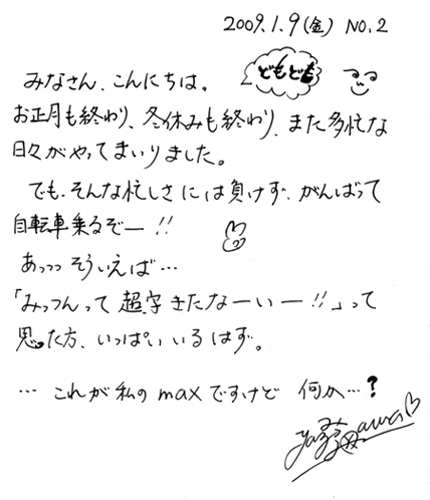 2009.1.9(金) NO.2
どもども
みなさん、こんにちは。
お正月も終わり、冬休みも終わり、また多忙な
日々がやってまいりました。
でも、そんな忙しさには負けず、がんばって
自転車乗るぞー!!
あっっっそういえば…
「みっつんって超字きたなーいー!!」って
思った方、いっぱいいるはず。
… これが私のmaxですけど 何か…?